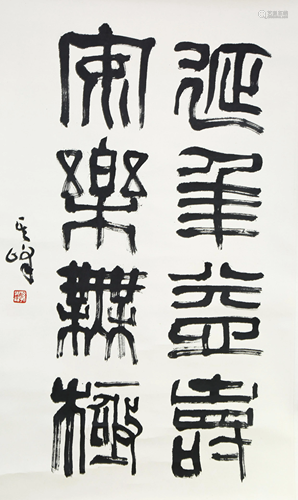 延年益壽
安樂無極
其峰